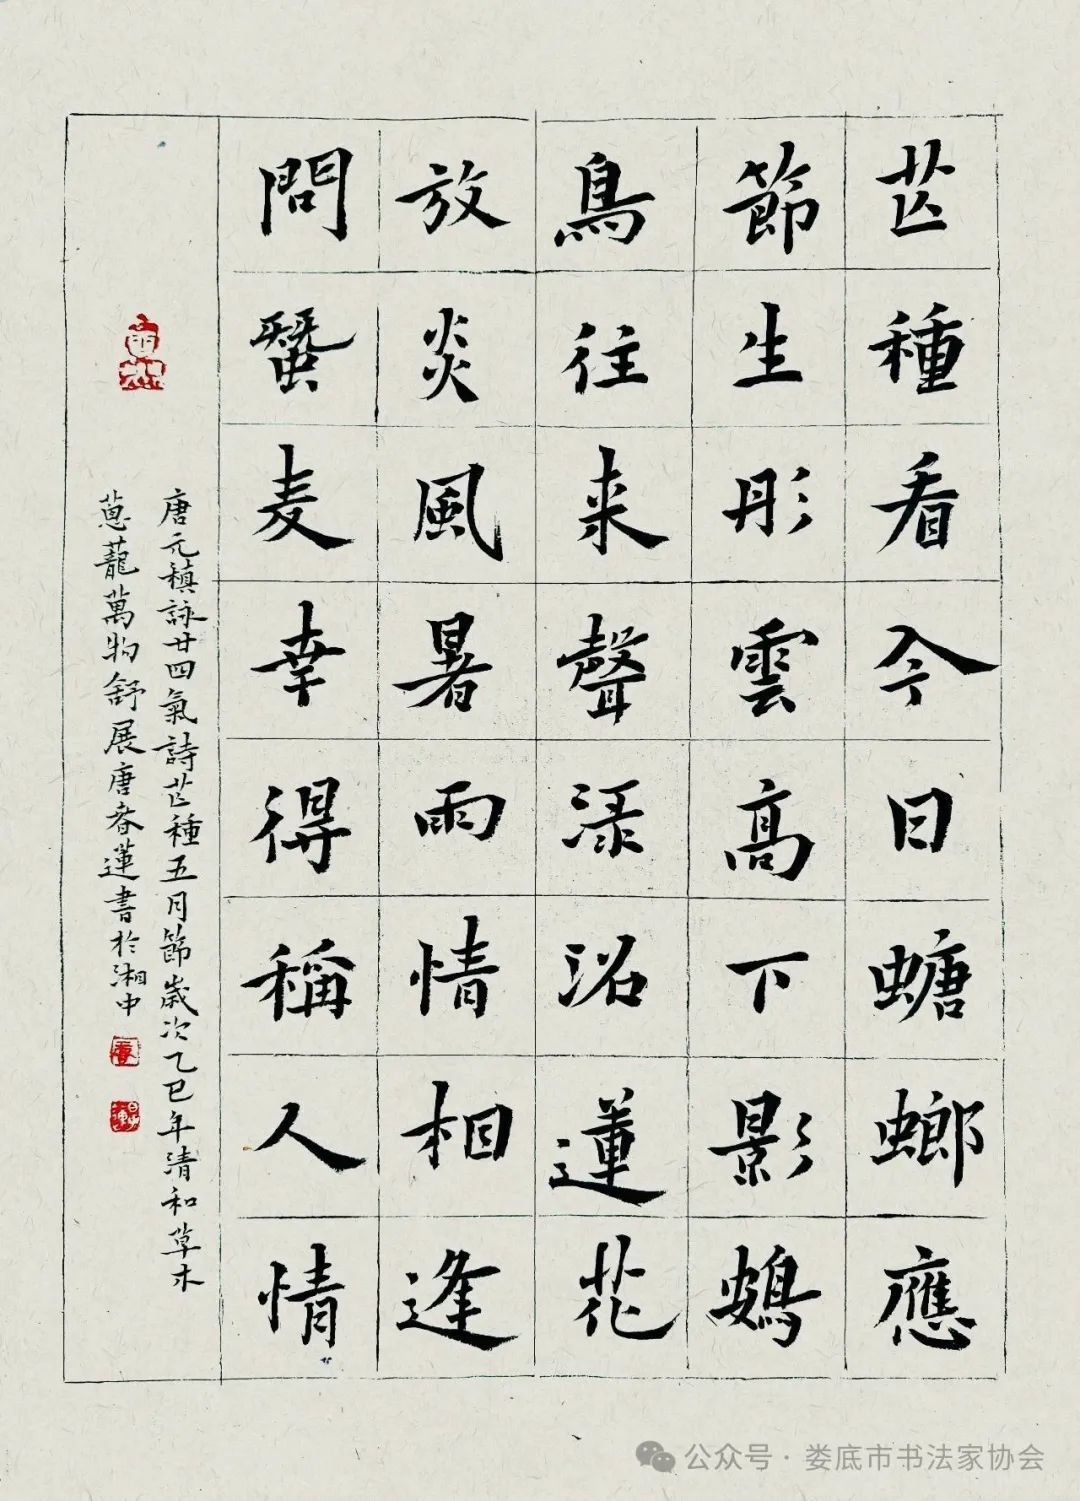 芒種看今日螗螂應
節生彤雲高下影鴳
鳥往来聲渌沼蓮花
放炎風暑雨情相逢
問蠶麦幸得稱人情
唐元稹詠廿四氣詩芒種五月節歲次乙巳年清和草木
蔥蘢萬物舒展唐春蓮書於湘中
公众号 · 娄底市书法家协会